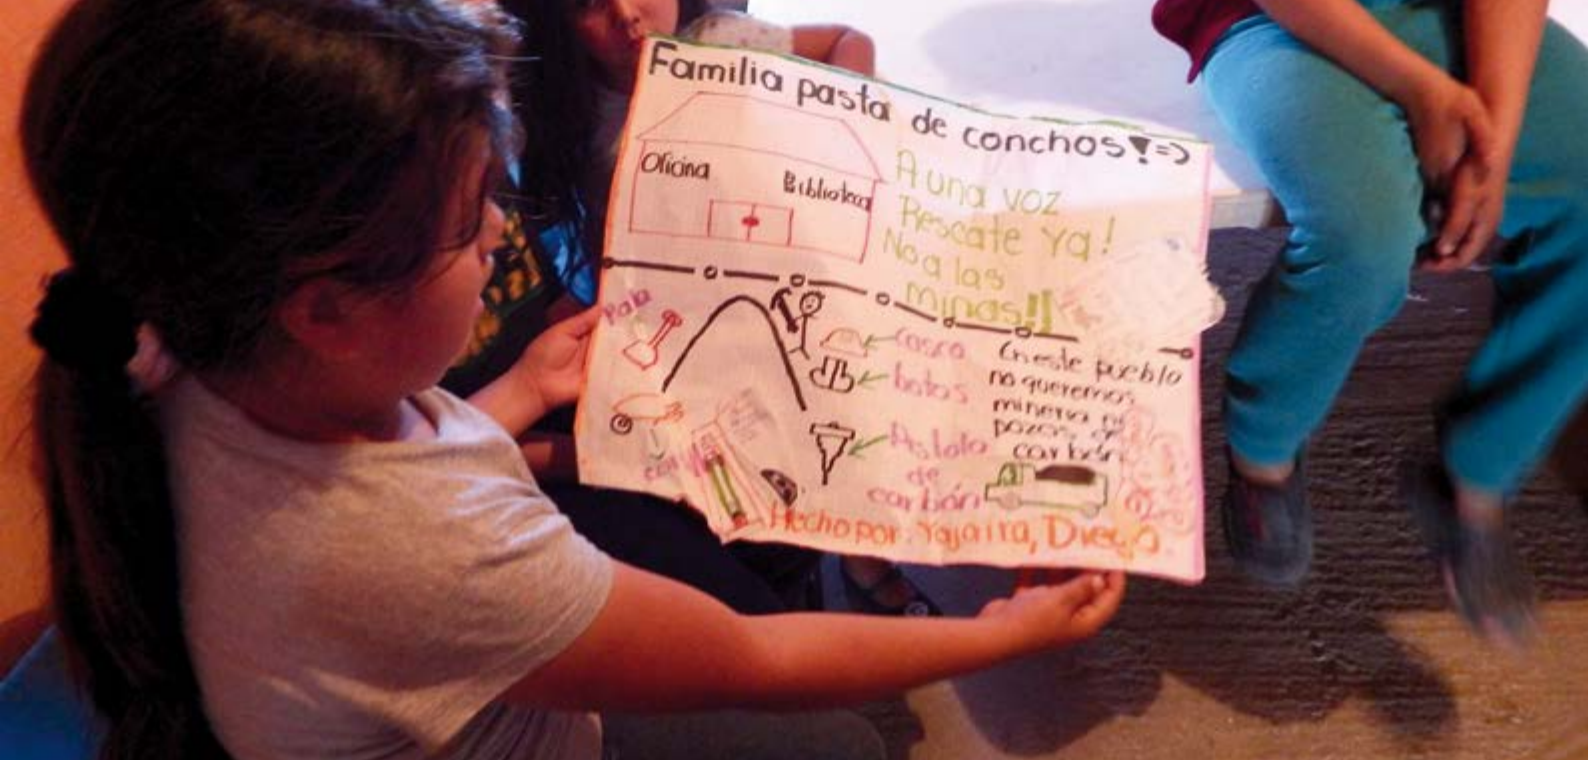 Familia pasta de conchos!=>
Oficina
Biblioteca
A una voz
Rescate ya!
No a las
minas!!
Pala
casco
botas
En este pueblo
no queremos
mineria ni
pozos de
carbón
Pistola
de
carbón
Hecho por: Yajaira, Diego